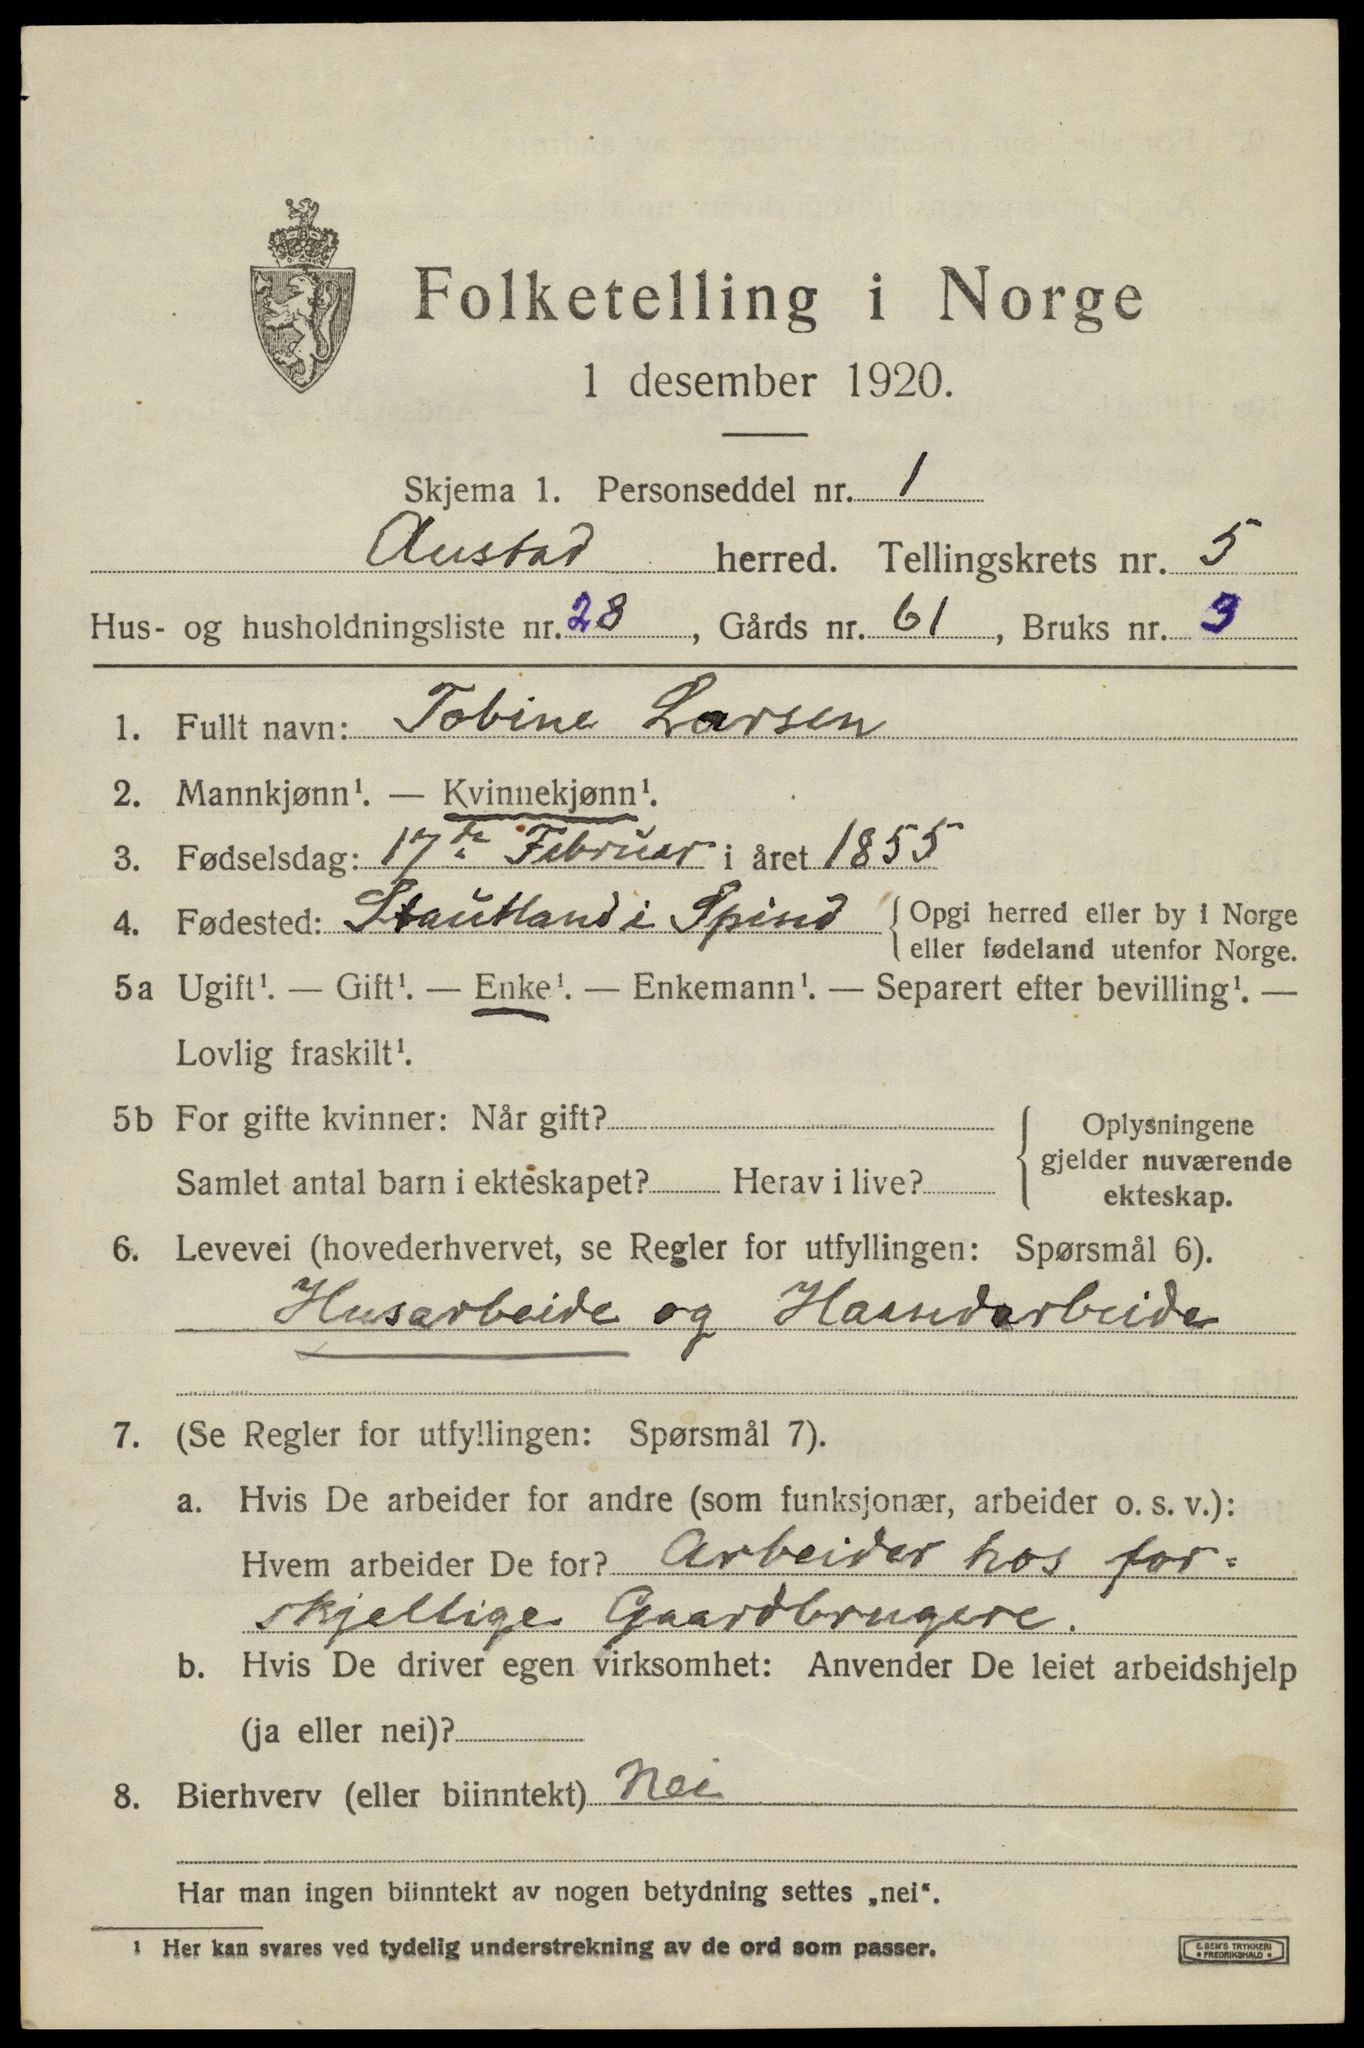 Folketelling i Norge
1 desember 1920.
Skjema 1. Personseddel nr. 1
Austad herred. Tellingskrets nr. 5
Hus- og husholdningsliste nr. 28, Gårds nr. 61, Bruks nr. 3
1. Fullt navn: Tobine Larsen
2. Mannkjønn¹. — Kvinnekjønn¹.
3. Fødselsdag: 17de Februar i året 1855
4. Fødested: i Spind { Opgi herred eller by i Norge
eller fødeland utenfor Norge.
5a Ugift¹. — Gift¹. — Enke¹. — Enkemann¹. — Separert efter bevilling¹. —
Lovlig fraskilt¹.
5b For gifte kvinner: Når gift?
Samlet antal barn i ekteskapet? Herav i live?
Oplysningene
gjelder nuværende
ekteskap.
6. Levevei (hovederhvervet, se Regler for utfyllingen: Spørsmål 6).
Husarbeide og Haandarbeide
7. (Se Regler for utfyllingen: Spørsmål 7).
a. Hvis De arbeider for andre (som funksjonær, arbeider o. s. v.):
Hvem arbeider De for? Arbeider hos for-
skjellige Gaardbrugere.
b. Hvis De driver egen virksomhet: Anvender De leiet arbeidshjelp
(ja eller nei)?
8. Bierhverv (eller biinntekt) Nei
Har man ingen biinntekt av nogen betydning settes „nei“.
¹ Her kan svares ved tydelig understrekning av de ord som passer.
E. SEM'S TRYKKERI
• FREDRIKSHALD •